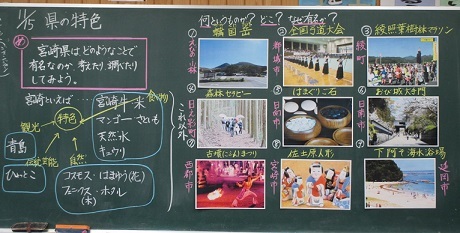 11/5 県の特色
め
宮崎県はどのようなことで
有名なのか 考えたり 調べたり
してみよう。
宮崎といえば……
宮崎牛 米
食べ物
マンゴー さといも
天然水
キュウリ
特色
観光
青島
伝統芸能
ひょっとこ
自然
コスモス・はまゆう(花)
フェニックス・ホタル
(木)
これ以外
何というもの? どこ? なぜ有名?
① 韓国岳
② 全国弓道大会
都城市
③ 綾照葉樹林マラソン
綾町
④ 森林セラピー
日之影町
⑤ はまぐり石
日向市
⑥ おび城大手門
日南市
⑦ 古墳(こふん)まつり
西都市
⑧ 佐土原人形
宮崎市
⑨ 下阿蘇海水浴場
延岡市